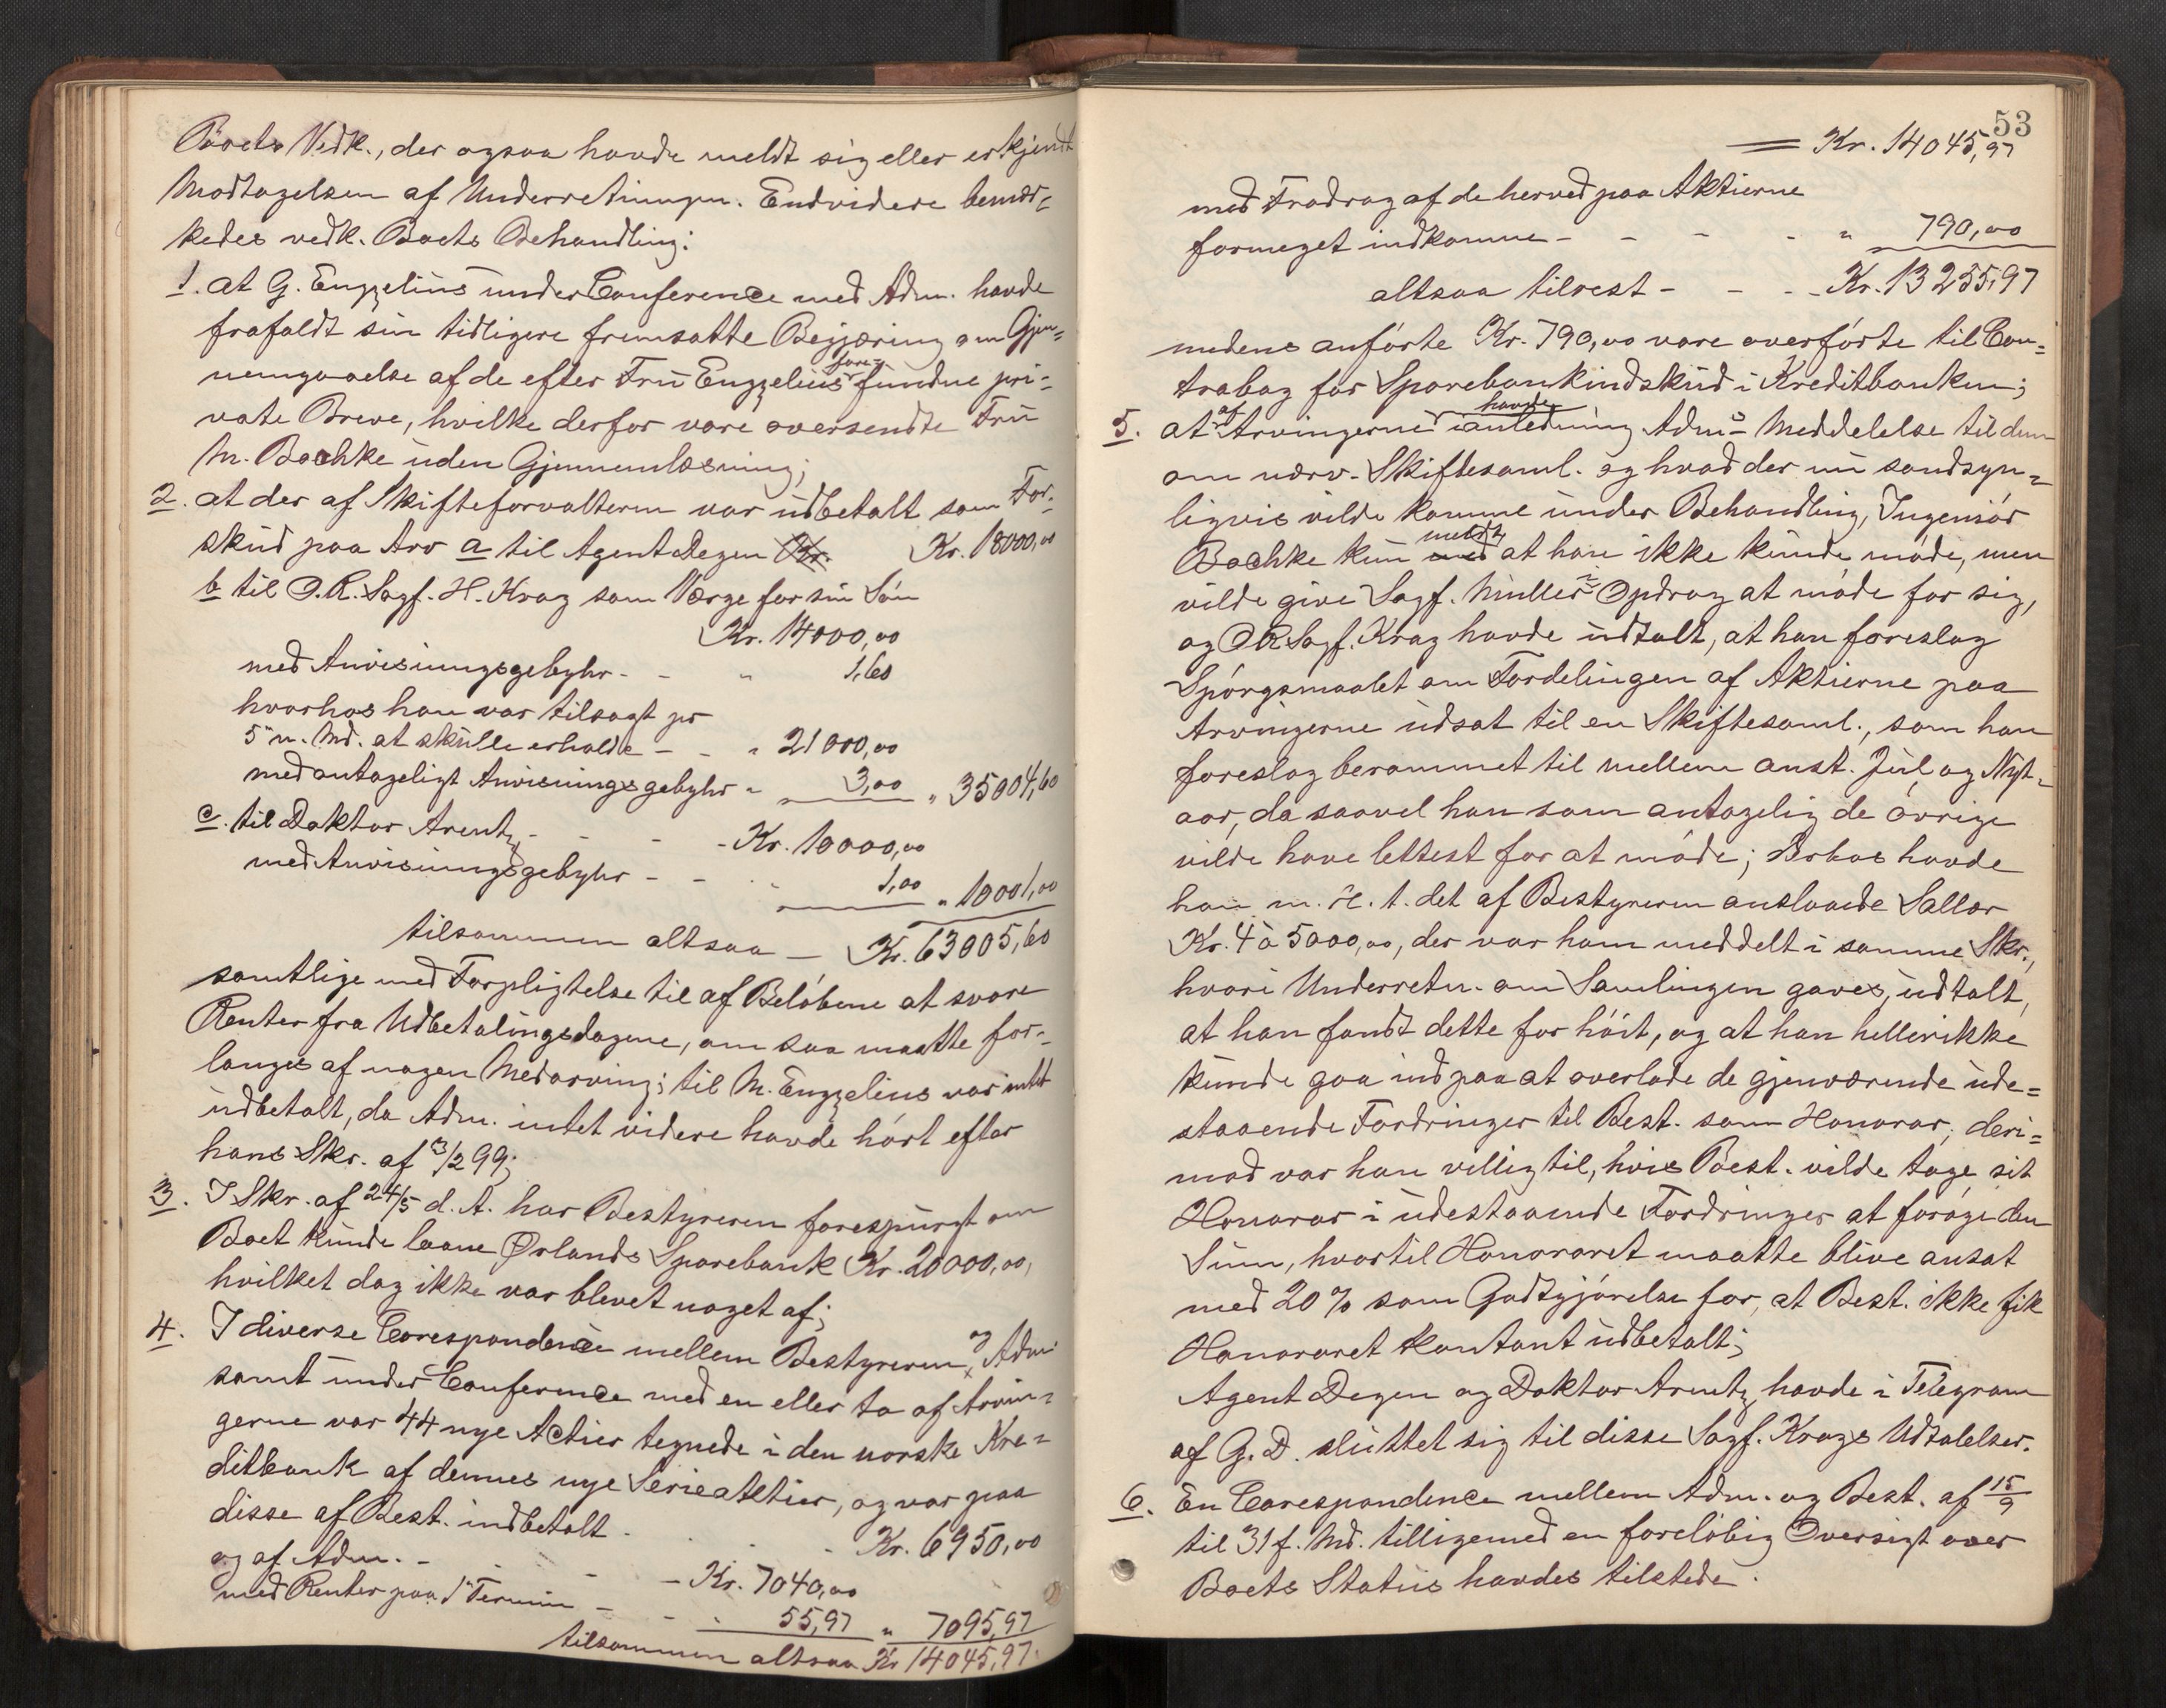 Boets Vedk., der ogsaa havde meldt sig eller erkjendt
Modtagelsen af Underretningen. Endvidere bemær=
kedes vedk. Boets Behandling:
1. at G. Engzelius under Conference med Adm. havde
frafaldt sin tidligere fremsatte Begjæring om Gjen=
nemgaaelse af de efter Fru Engzelius fore=fundne pri=
vate Breve, hvilke derfor vare oversendte Fru
M. Bachke uden Gjennemlæsning;
2. at der af Skifteforvalteren var udbetalt som For=
skud paa Arv a til Agent Degen Kr. 18000,00
b til O.R. Sagf. H. Krag som Værge for sin Søn
Kr. 14000,00
med Anvisningsgebyhr - - " 1,60
hvorhos han var tilsagt pr
5te n. Md. at skulle erholde - - " 21000,00
med antageligt Anvisningsgebyhr " 3,00 " 35004,60
c. til Doktor Arentz - - - Kr. 10000,00
med Anvisningsgebyhr - - " 1,00 " 10001,00
tilsammen altsaa - Kr. 63005,60
samtlige med Forpligtelse til af Beløbene at svare
Renter fra Udbetalingsdagene, om saa maatte for=
langes af nogen Medarving; til M. Engzelius var intet
udbetalt, da Adm. intet videre havde hørt efter
hans Skr. af 3/2 99;
3. I Skr. af 24/5 d. A. har Bestyreren forespurgt om
Boet kunde laane Ørlands Sparebank Kr. 20000,00,
hvilket dog ikke var blevet noget af;
4. I diverse Correspondence mellem Bestyreren og Adm.
samt under Conference med en eller to af Arvin=
gerne var 44 nye Actier tegnede i den norske Kre=
ditbank af dennes nye Serieaktier, og var paa
disse af Best. indbetalt - - - Kr. 6950,00
og af Adm. - - - Kr. 7040,00
med Renter paa 1te Termin - - " 55,97 " 7095,97
tilsammen altsaa Kr 14045,97.
53
= Kr. 14045,97
med Fradrag af de herved paa Aktierne
formeget indkomne - - - - " 790,00
altsaa tilrest - - - Kr. 13255,97
medens anførte Kr. 790,00 vare overførte til Con=
trabog for Sparebankindskud i Kreditbanken;
5. at af Arvingerne havde i anledning Adms Meddelelse til dem
om nærv. Skiftesaml. og hvad der nu sandsyn=
ligvis vilde komme under Behandling, Ingeniør
Bachke kun meldt at han ikke kunde møde, men
vilde give Sagf. Müller i Opdrag at møde for sig,
og O R Sagf. Krag havde udtalt, at han foreslog
Spørgsmaalet om Fordelingen af Aktierne paa
Arvingerne udsat til en Skiftesaml., som han
foreslog berammet til mellem anst. Jul og Nyt=
aar, da saavel han som antagelig de øvrige
vilde have lettest for at møde; Derhos havde
han m. H. t. det af Bestyreren anslaaede Sallær
Kr. 4 à 5000,00, der var ham meddelt i samme Skr.,
hvori Underretn. om Samlingen gaves, udtalt,
at han fandt dette for høit, og at han hellerikke
kunde gaa ind paa at overlade de gjenværende ude=
staaende Fordringer til Best. som Honorar; deri=
mod var han villig til, hvis Best. vilde tage sit
Honorar i udestaaende Fordringer at forøge den
Sum, hvortil Honoraret maatte blive ansat
med 20 % som Godtgjørelse for, at Best. ikke fik
Honoraret kontant udbetalt;
Agent Degen og Doktor Arentz havde i Telegram
af G. D. sluttet sig til disse Sagf. Krags Udtalelser.
6. En Correspondence mellem Adm. og Best. af 15/9
til 31 f. Md. tilligemed en foreløbig Oversigt over
Boets Status havdes tilstede.